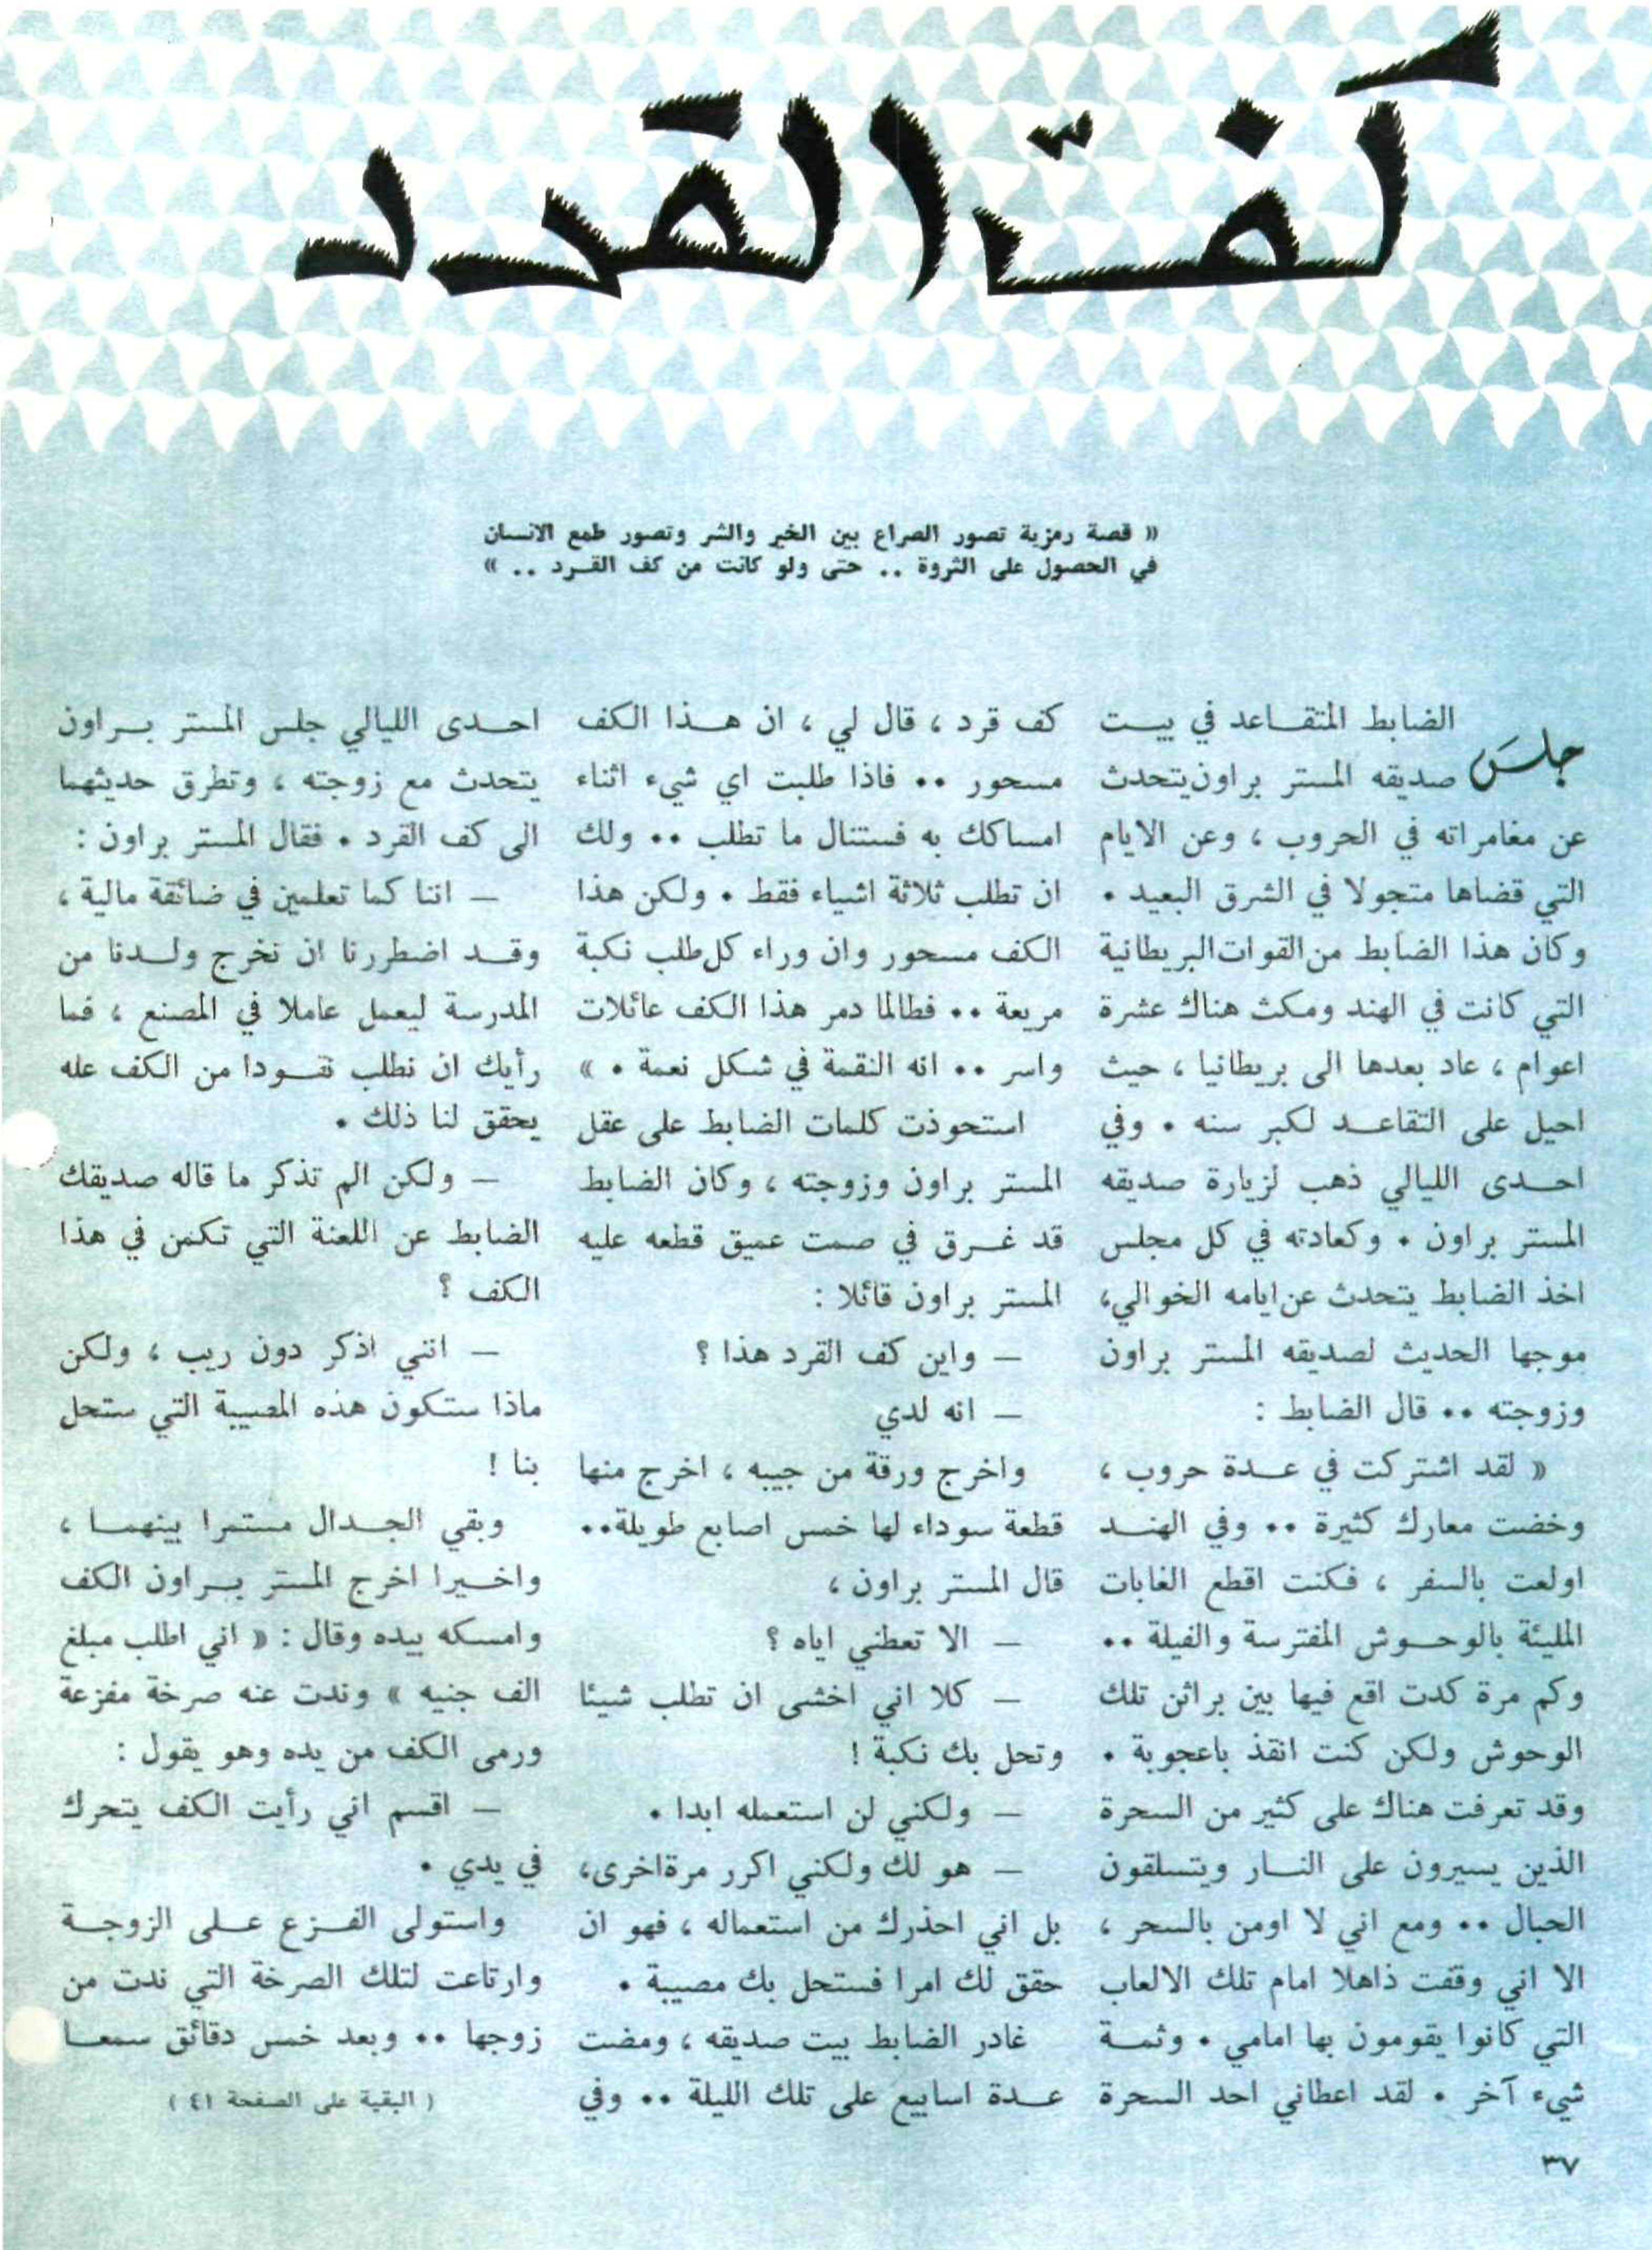 كفّ القرد
« قصة رمزية تصور الصراع بين الخير والشر وتصور طمع الانسان
في الحصول على الثروة .. حتى ولو كانت من كف القرد .. »
جلسَ الضابط المتقاعد في بيت
صديقه المستر براون يتحدث
عن مغامراته في الحروب ، وعن الايام
التي قضاها متجولا في الشرق البعيد .
وكان هذا الضابط من القوات البريطانية
التي كانت في الهند ومكث هناك عشرة
اعوام ، عاد بعدها الى بريطانيا ، حيث
احيل على التقاعد لكبر سنه . وفي
احدى الليالي ذهب لزيارة صديقه
المستر براون . وكعادته في كل مجلس
اخذ الضابط يتحدث عن ايامه الخوالي،
موجها الحديث لصديقه المستر براون
وزوجته .. قال الضابط :
« لقد اشتركت في عدة حروب ،
وخضت معارك كثيرة .. وفي الهند
اولعت بالسفر ، فكنت اقطع الغابات
المليئة بالوحوش المفترسة والفيلة ..
وكم مرة كدت اقع فيها بين براثن تلك
الوحوش ولكن كنت انقذ باعجوبة .
وقد تعرفت هناك على كثير من السحرة
الذين يسيرون على النار ويتسلقون
الحبال .. ومع اني لا اومن بالسحر ،
الا اني وقفت ذاهلا امام تلك الالعاب
التي كانوا يقومون بها امامي . وثمة
شيء آخر . لقد اعطاني احد السحرة
كف قرد ، قال لي ، ان هذا الكف
مسحور .. فاذا طلبت اي شيء اثناء
امساكك به فستنال ما تطلب .. ولك
ان تطلب ثلاثة اشياء فقط . ولكن هذا
الكف مسحور وان وراء كل طلب نكبة
مريعة .. فطالما دمر هذا الكف عائلات
واسر .. انه النقمة في شكل نعمة . »
استحوذت كلمات الضابط على عقل
المستر براون وزوجته ، وكان الضابط
قد غرق في صمت عميق قطعه عليه
المستر براون قائلا :
— واين كف القرد هذا ؟
— انه لدي
واخرج ورقة من جيبه ، اخرج منها
قطعة سوداء لها خمس اصابع طويلة..
قال المستر براون ،
— الا تعطني اياه ؟
— كلا اني اخشى ان تطلب شيئا
وتحل بك نكبة !
— ولكني لن استعمله ابدا .
— هو لك ولكني اكرر مرة اخرى،
بل اني احذرك من استعماله ، فهو ان
حقق لك امرا فستحل بك مصيبة .
غادر الضابط بيت صديقه ، ومضت
عدة اسابيع على تلك الليلة .. وفي
احدى الليالي جلس المستر براون
يتحدث مع زوجته ، وتطرق حديثهما
الى كف القرد . فقال المستر براون :
— اننا كما تعلمين في ضائقة مالية ،
وقد اضطررنا ان نخرج ولدنا من
المدرسة ليعمل عاملا في المصنع ، فما
رأيك ان نطلب نقودا من الكف عله
يحقق لنا ذلك .
— ولكن الم تذكر ما قاله صديقك
الضابط عن اللعنة التي تكمن في هذا
الكف ؟
— انني اذكر دون ريب ، ولكن
ماذا ستكون هذه المصيبة التي ستحل
بنا !
وبقي الجدال مستمرا بينهما ،
واخيرا اخرج المستر براون الكف
وامسكه بيده وقال : « اني اطلب مبلغ
الف جنيه » وندت عنه صرخة مفزعة
ورمى الكف من يده وهو يقول :
— اقسم اني رأيت الكف يتحرك
في يدي .
واستولى الفزع على الزوجة
وارتاعت لتلك الصرخة التي ندت من
زوجها .. وبعد خمس دقائق سمعا
( البقية على الصفحة ٤١ )
٣٧